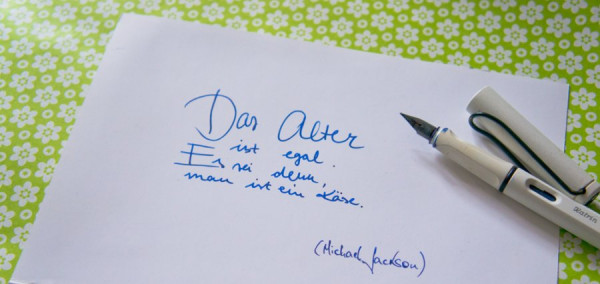 Das Alter
ist egal.
Es sei denn,
man ist ein Käse.
(Michael Jackson)
Katrin